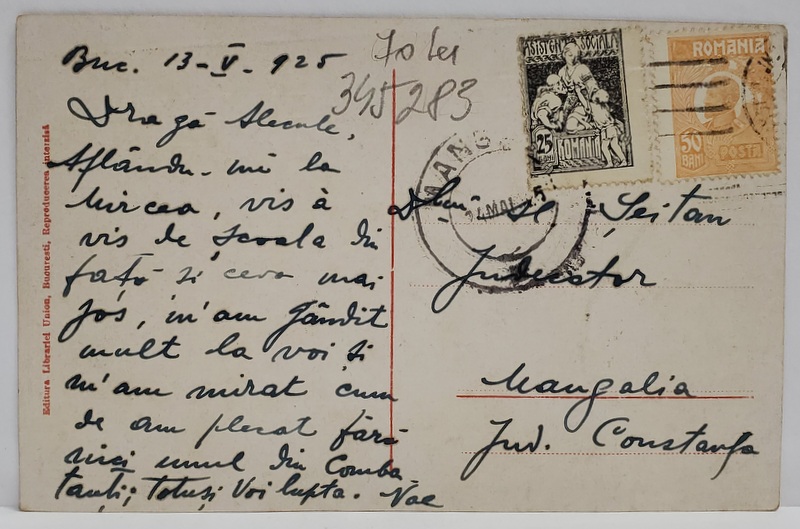 Buc. 13-V-925
Dragă Alecule,
Aflându-mĕ la
Mircea, vis à
vis de școala din
față și ceva mai
jos, m'am gândit
mult la voi și
m'am mirat cum
de am plecat fără
nici unul din Comba
tanți; Totuși Voi lupta. Nae
70 lei
345283
ASISTENȚA SOCIALĂ
25
BANI
ROMANIA
ROMANIA
50
BANI
POSTA
MANG
MAI
Șeitan
Judecător
Mangalia
Jud. Constanța
Editura Librăriei Union, București, Reproducerea interzisă